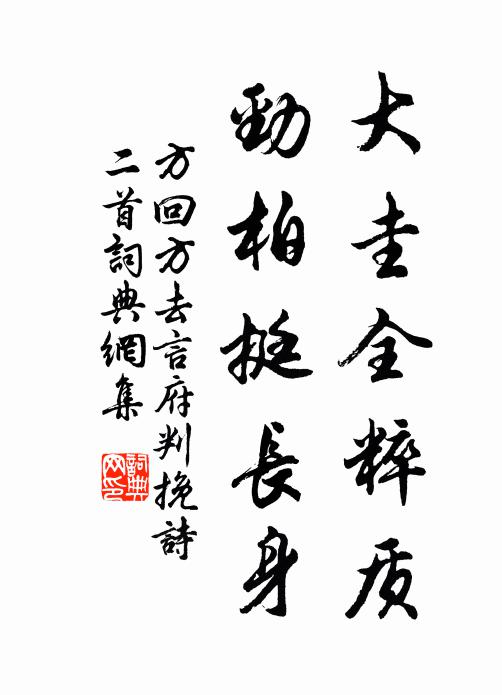 大圭全粹质
勁柏挺長身
方回方去言府判挽詩
二首詞典網集
詞典网印